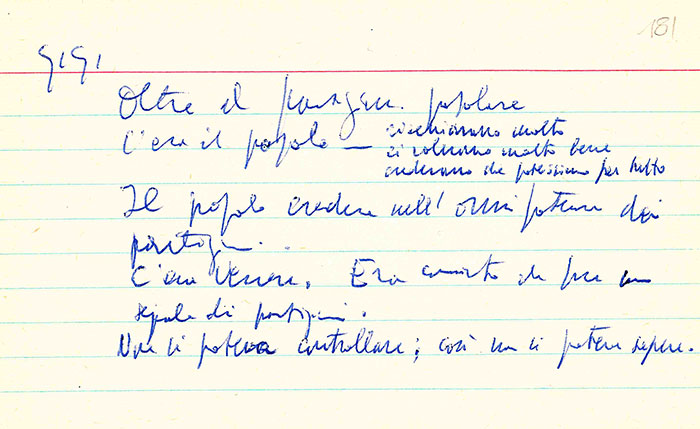 181
GIGI
Oltre il popolare
C'era il popolo — rischiavano molto
ci volevano molto bene
credevano che potessimo far tutto
Il popolo credeva nell'onnipotenza dei
partigiani.
C'era Era
di partigiani.
Non si poteva controllare; così non si poteva sapere.